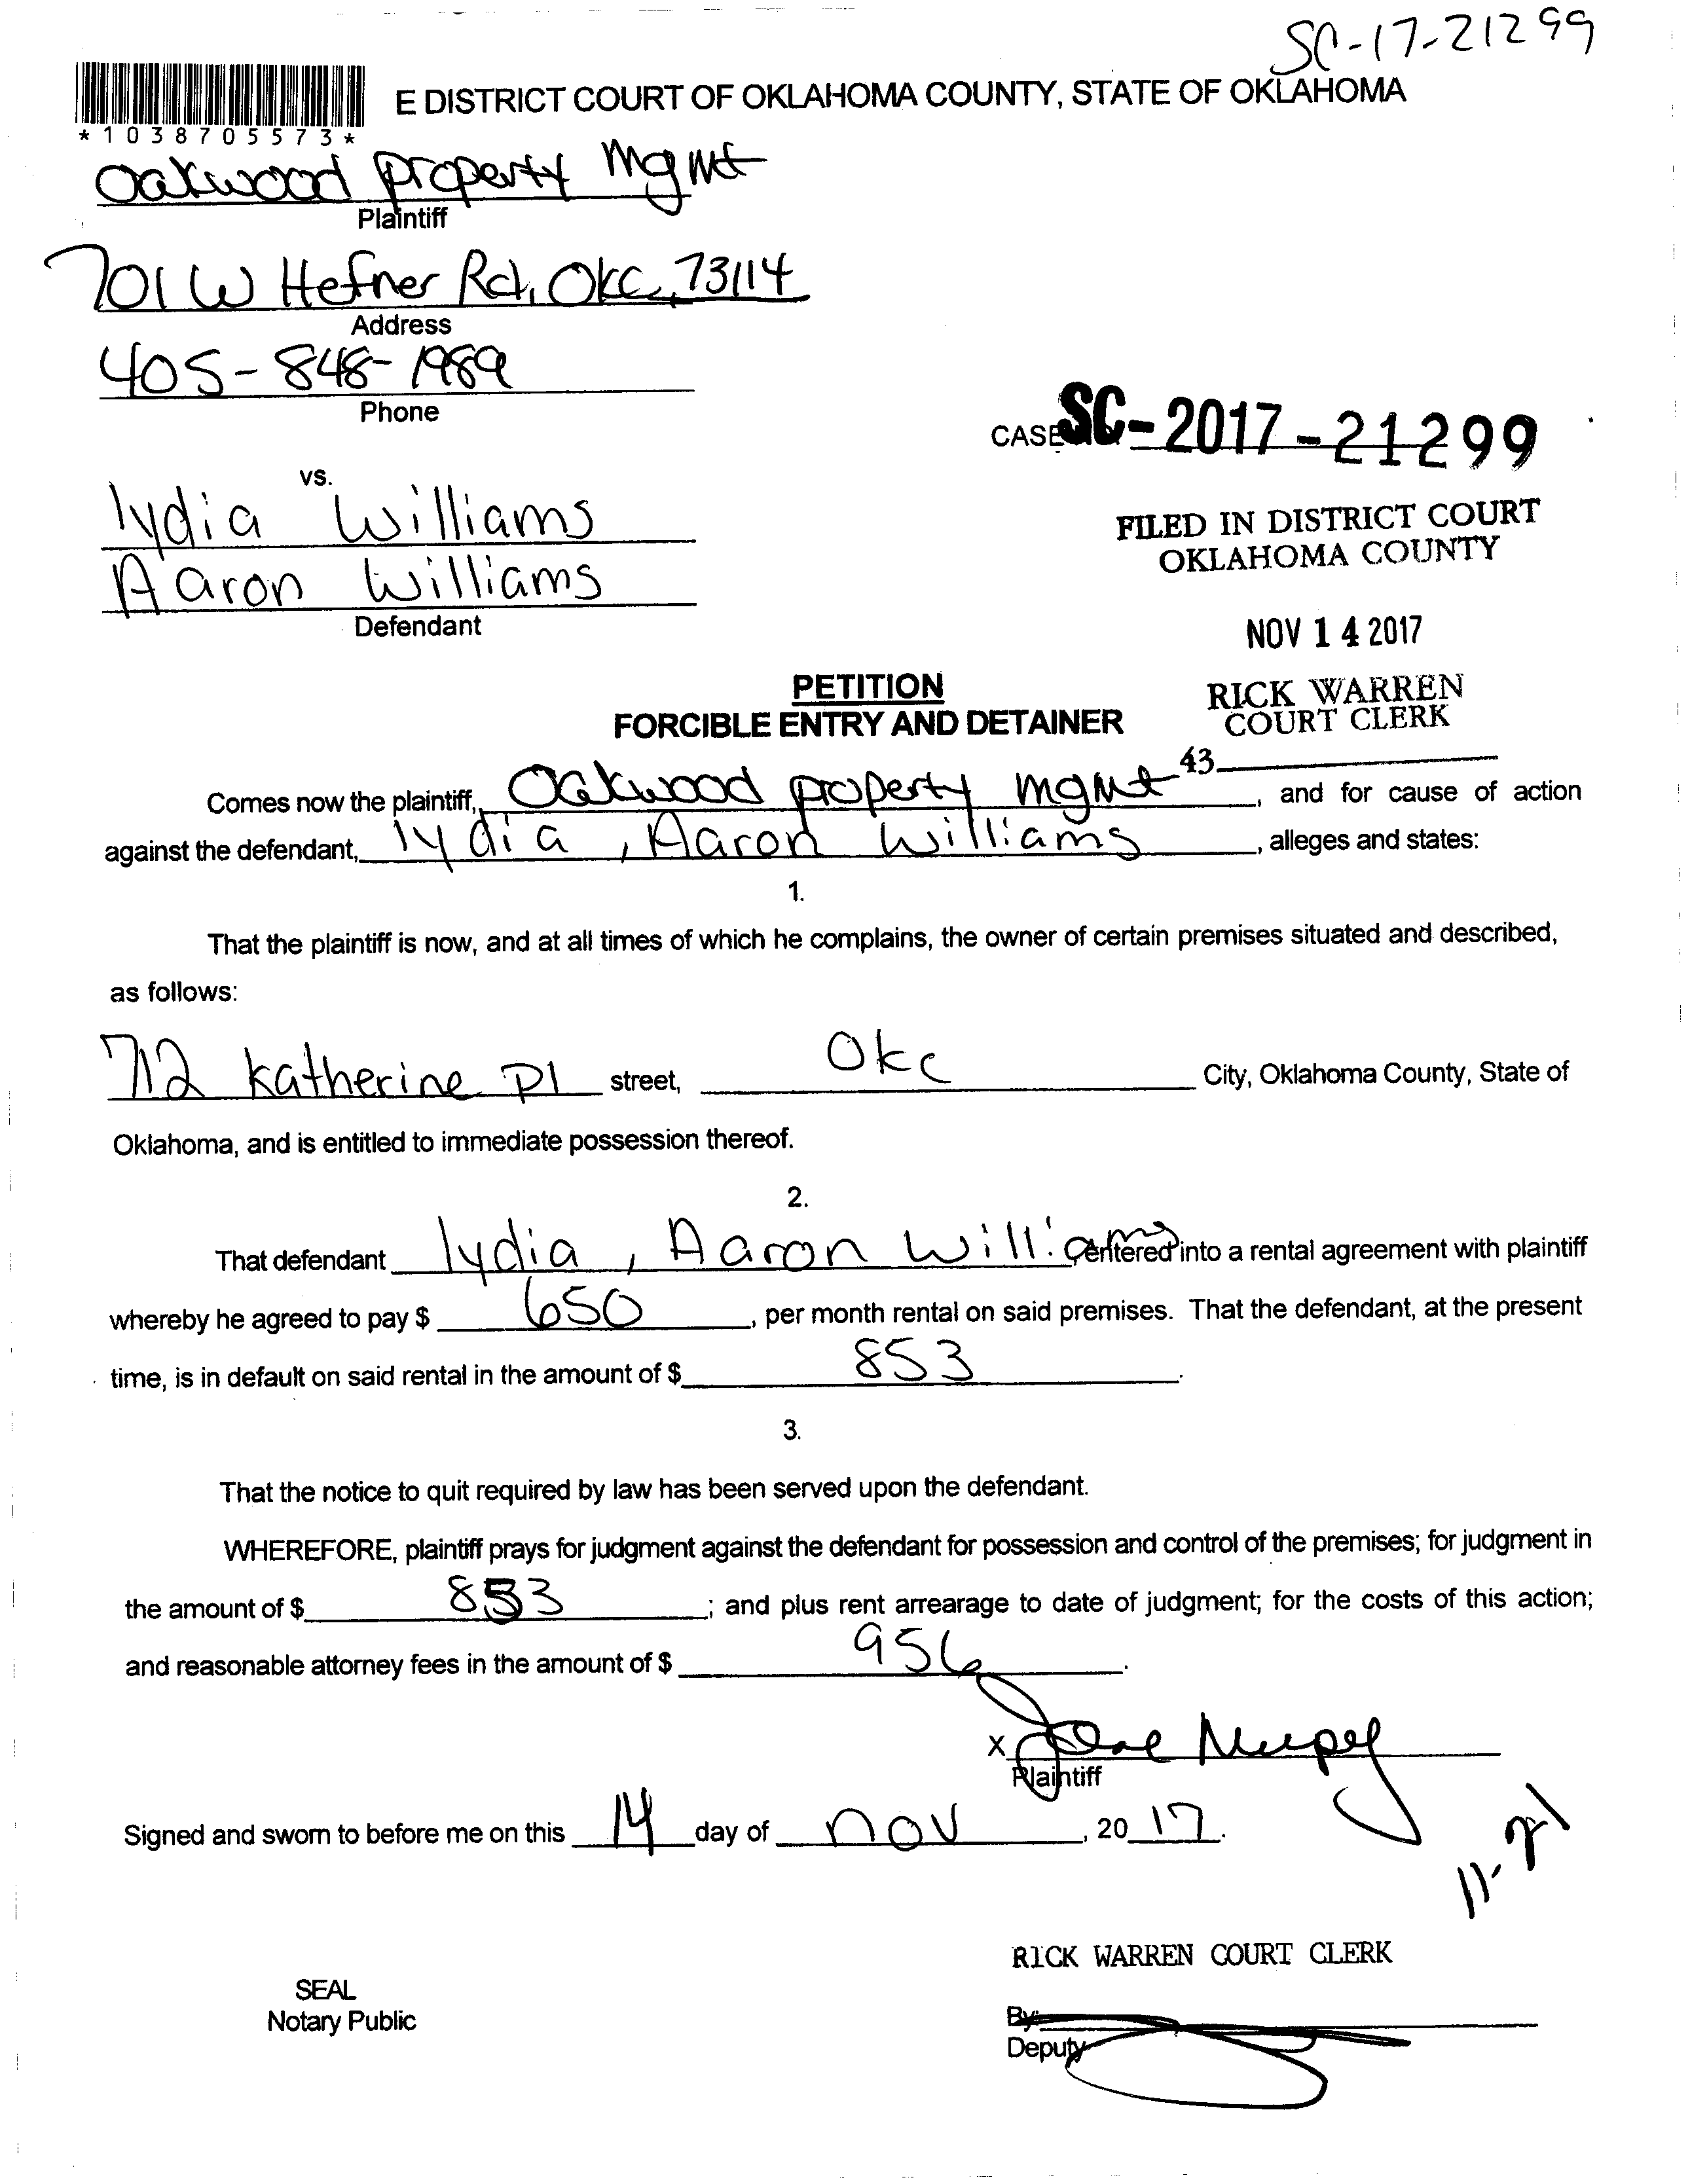 SC-17-21299
E DISTRICT COURT OF OKLAHOMA COUNTY, STATE OF OKLAHOMA
*1038705573*
Oakwood property Mgmt
Plaintiff
701 W Hefner Rd, Okc, 73114
Address
405-848-1989
Phone
CASE SC-2017-21299
vs.
lydia Williams
FILED IN DISTRICT COURT
OKLAHOMA COUNTY
Aaron Williams
Defendant
NOV 14 2017
PETITION
RICK WARREN
FORCIBLE ENTRY AND DETAINER
COURT CLERK
43
Comes now the plaintiff, Oakwood property mgmt, and for cause of action
against the defendant, lydia, Aaron Williams, alleges and states:
1.
That the plaintiff is now, and at all times of which he complains, the owner of certain premises situated and described,
as follows:
712 Katherine Pl street, Okc City, Oklahoma County, State of
Oklahoma, and is entitled to immediate possession thereof.
2.
That defendant lydia, Aaron Williams entered into a rental agreement with plaintiff
whereby he agreed to pay $ 650, per month rental on said premises. That the defendant, at the present
time, is in default on said rental in the amount of $ 853.
3.
That the notice to quit required by law has been served upon the defendant.
WHEREFORE, plaintiff prays for judgment against the defendant for possession and control of the premises; for judgment in
the amount of $ 853; and plus rent arrearage to date of judgment; for the costs of this action;
and reasonable attorney fees in the amount of $ 956.
X
Plaintiff
Signed and sworn to before me on this 14 day of nov, 20 17.
11-21
RICK WARREN COURT CLERK
SEAL
Notary Public
By:
Deputy